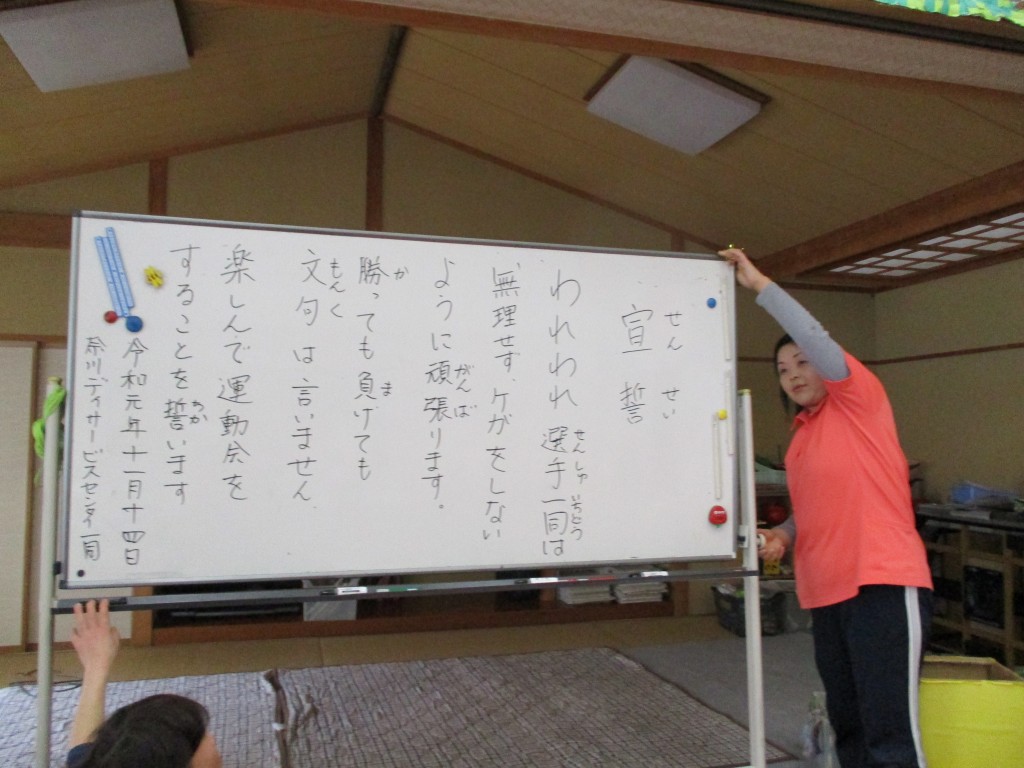 宣誓
せんせい
われわれ選手一同は
せんしゅいちどう
無理せず、ケガをしない
ように頑張ります。
がんば
勝っても負けても
かま
文句は言いません
もんく
楽しんで運動会を
することを誓います
ちか
令和元年十一月十四日
奈川デイサービスセンター一同